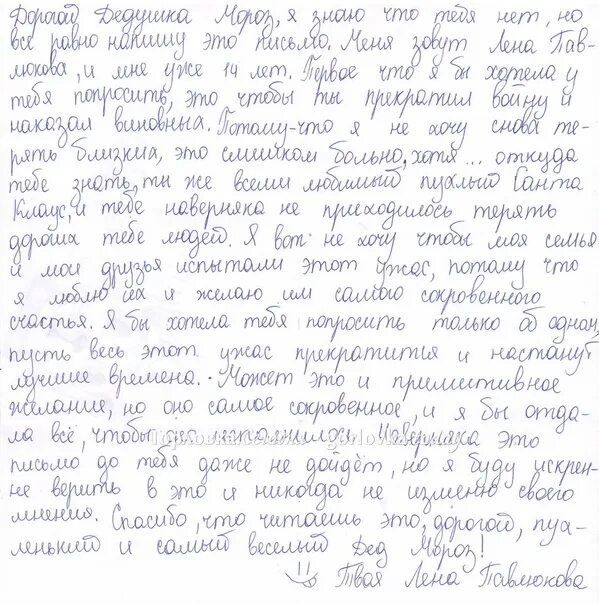 Дорогой Дедушка Мороз, я знаю что тебя нет, но
всё равно напишу это письмо. Меня зовут Лена Пав-
люкова, и мне уже 14 лет. Первое что я бы хотела у
тебя попросить, это чтобы ты прекратил войну и
наказал виновных. Потому-что я не хочу снова те-
рять близких, это слишком больно, хотя... откуда
тебе знать, ты же всеми любимый, пухлый Санта
Клаус, и тебе наверняка не приходилось терять
дорогих тебе людей. Я вот не хочу чтобы моя семья
и мои друзья испытали этот ужас, потому что
я люблю их и желаю им самого сокровенного
счастья. Я бы хотела тебя попросить только об одном,
пусть весь этот ужас прекратится и настанут
лучшие времена. Может это и примитивное
желание, но оно самое сокровенное, и я бы отда-
ла всё, чтобы оно исполнилось. Наверняка это
письмо до тебя даже не дойдёт, но я буду искрен-
не верить в это и никогда не изменю своего
мнения. Спасибо, что читаешь это, дорогой, пух-
ленький и самый веселый Дед Мороз!
Твоя Лена Павлюкова